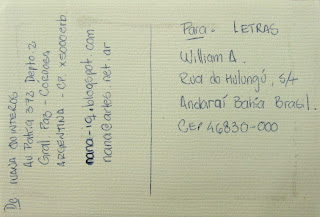 De NANA QUINTEROS
Av Patria 372 Depto 2
Gral Paz - CORDOBA
ARGENTINA - CP. X5000
nana-iq.blogspot.com
nana@artes.net.ar
Para: LETRAS
William A.
Rua do Mulungú, S/4
Andaraí Bahia Brasil.
CEP 46830-000